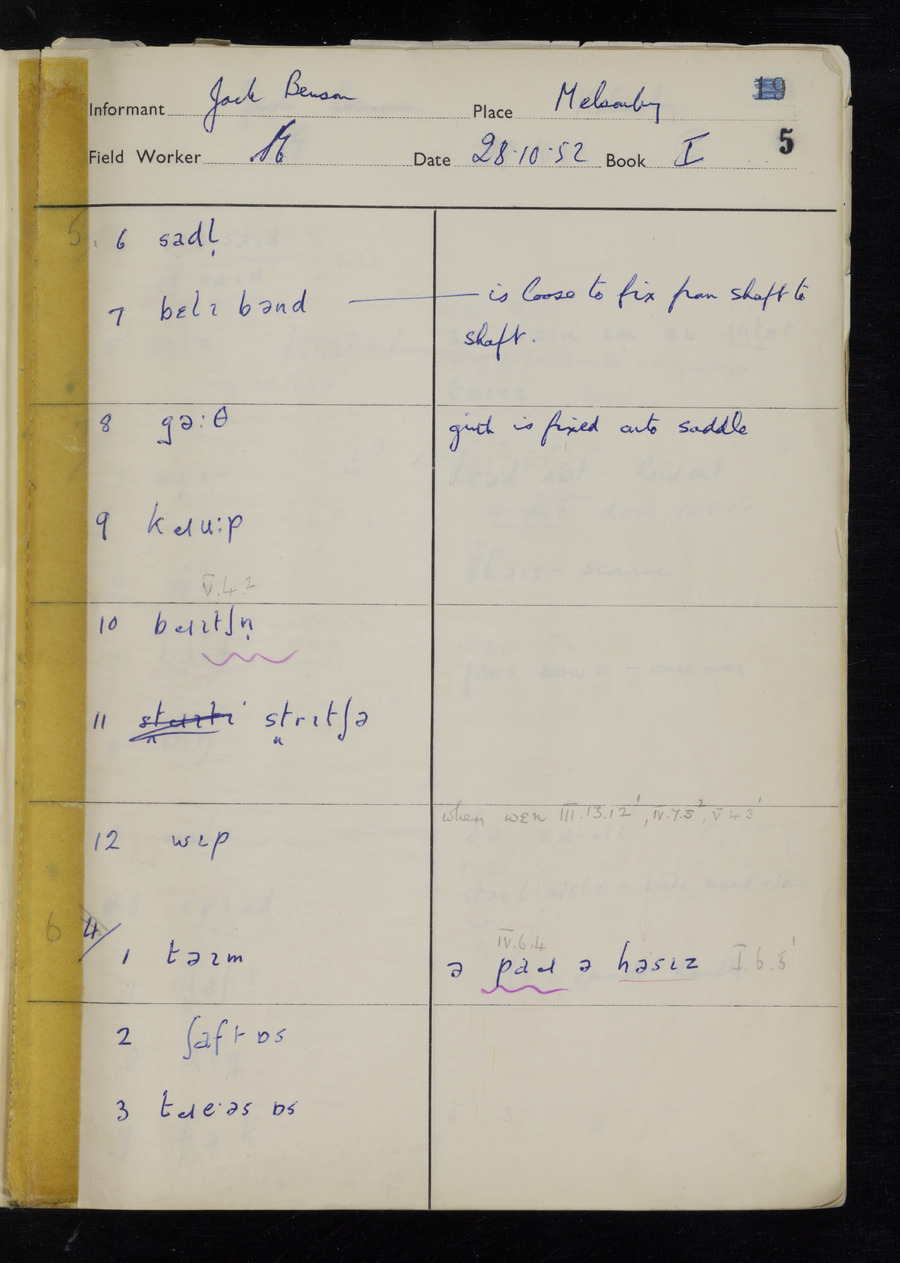 19
Informant Jack Benson Place Melsonby
5
Field Worker Date 28·10·52 Book I
5. 6 sadl̩
7 bɛlɪ bənd — is loose to fix from shaft to
shaft.
8 gə:θ girth is fixed onto saddle
9 kɹu:p
V.4.2
10 bɹɪtʃn̩
11 strɪtʃə
when wɛn III.13.12¹, IV.7.5², V.4.3¹
12 wɪp
6 4/
IV.6.4
1 təɪm ə paɹ ə həsɪz I.6.5¹
2 ʃaft ɒs
3 tɹe·əs ɒs